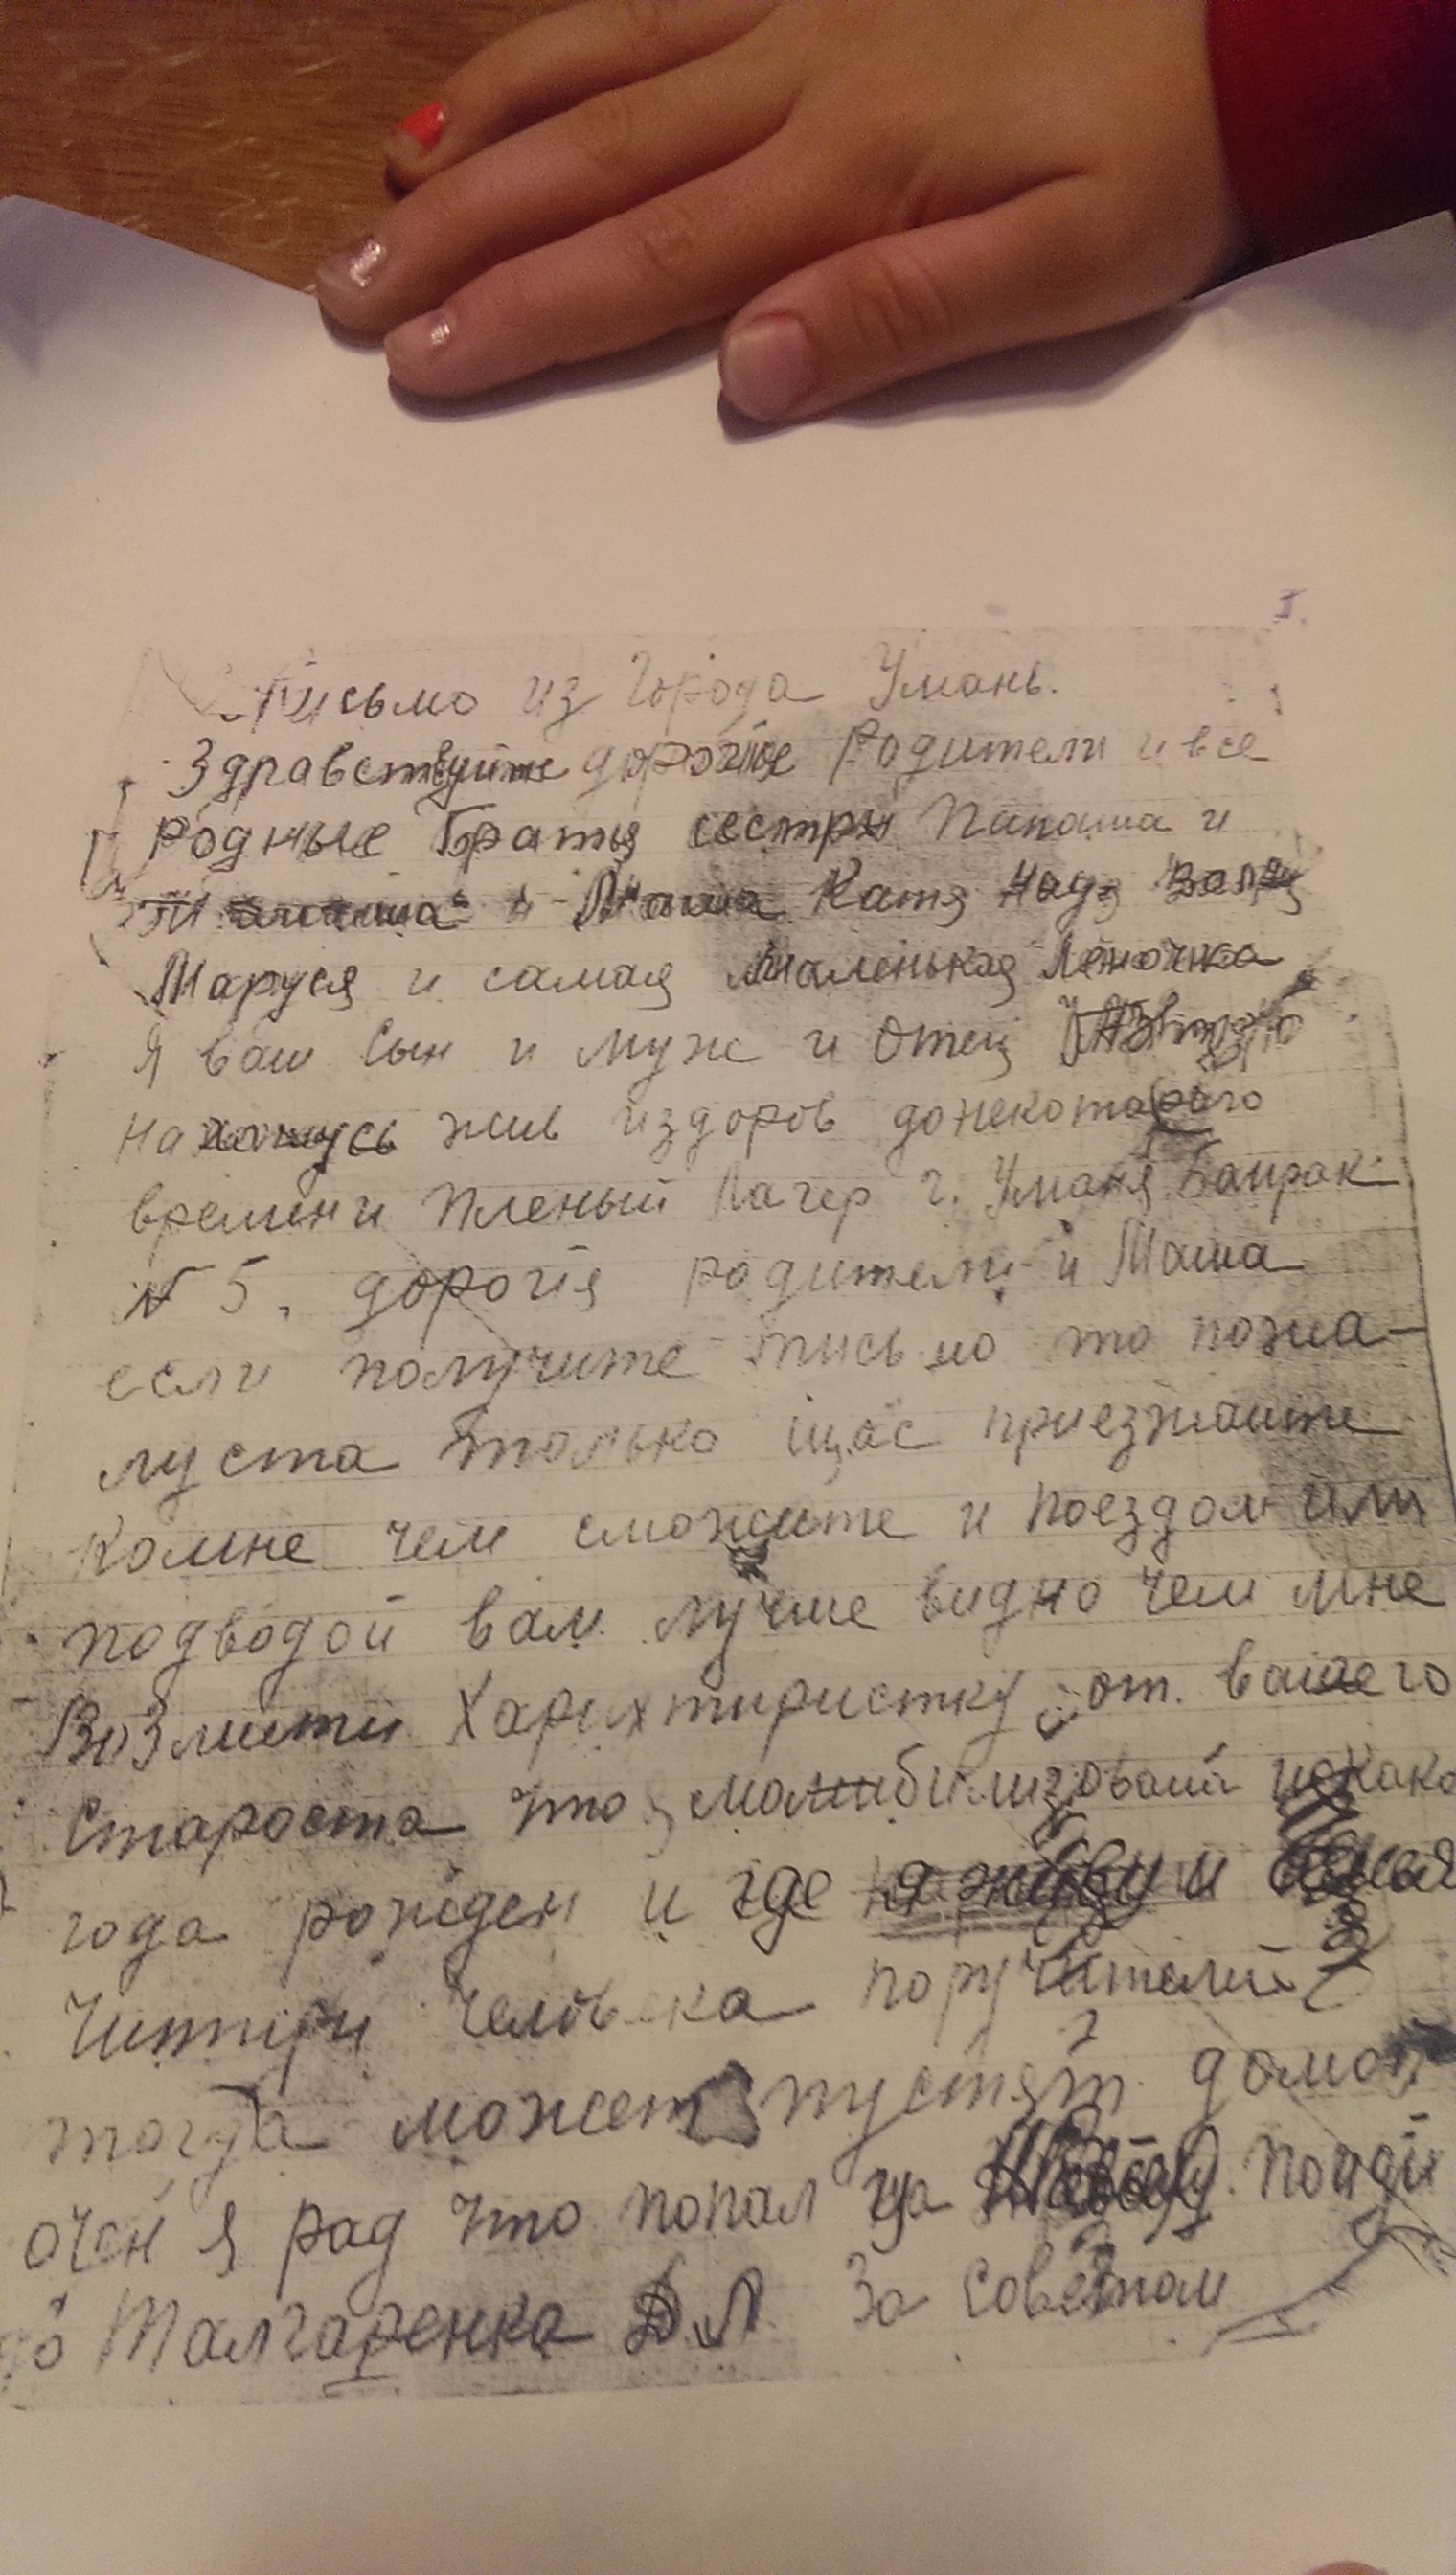 I.
Письмо из Города Умань.
Здравствуйте дорогие Родители и все
родные Братья сестры Папаша и
Мамаша и Маша Катя Надя Валя
Маруся и самая маленькая Леночка
Я ваш Сын и муж и Отец
нахожусь жив издоров донекоторого
времини Пленый Лагер г. Уманя Баирак
№ 5. дорогія родители и Маша
если получите письмо то пожа-
луста только щас приезжаите
Комне чем сможите и поездом или
подводой вам лучше видно чем мне
Возмити Харихтиристку от вашего
Староста что мобилизованй какого
года рожден и где я живу и
Читири человека поручителий
тогда может пустят домой
очен я рад что попал
Малгаренка Д.Л за Советом